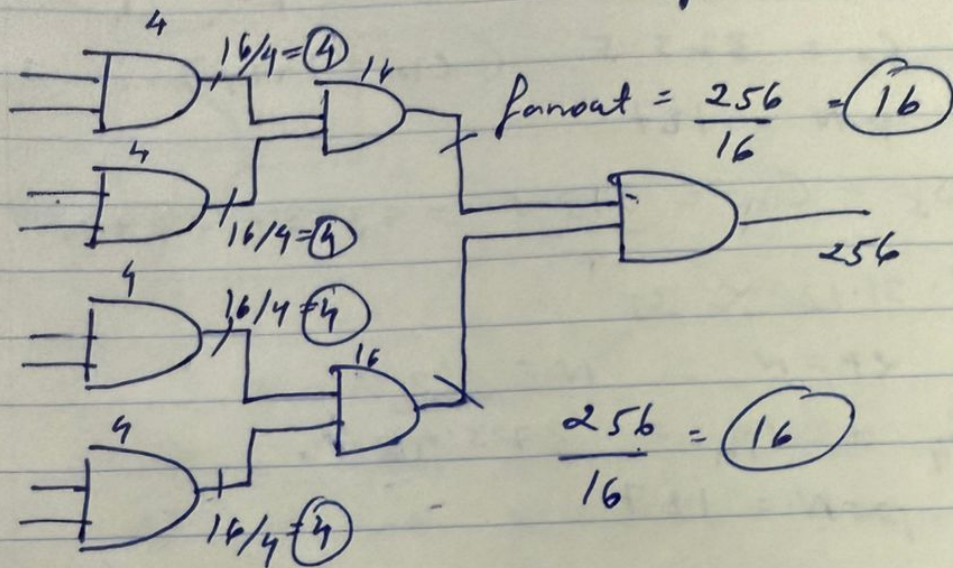 4
16/4 = 4
16
fanout = 256/16 = 16
4
16/4 = 4
256
4
16/4 = 4
16
256/16 = 16
4
16/4 = 4